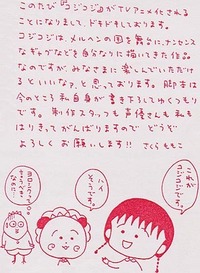 このたび「コジコジ」がTVアニメ化される
ことになりまして、ドキドキしております。
コジコジは、メルヘンの国を舞台に、ナンセンス
なギャグなどを自分なりに描いてきた作品
なのですが、みなさまに楽しんでいただけ
るといいなァ、と思っております。脚本は
今のところ私自身が書き下ろしてゆくつもり
です。制作スタッフも声優さんも私も
はりきってがんばりますので どうぞ
よろしくお願いします!! さくらももこ
これが
コジコジです。
ハイ
そうです。
ヨロシクッ。